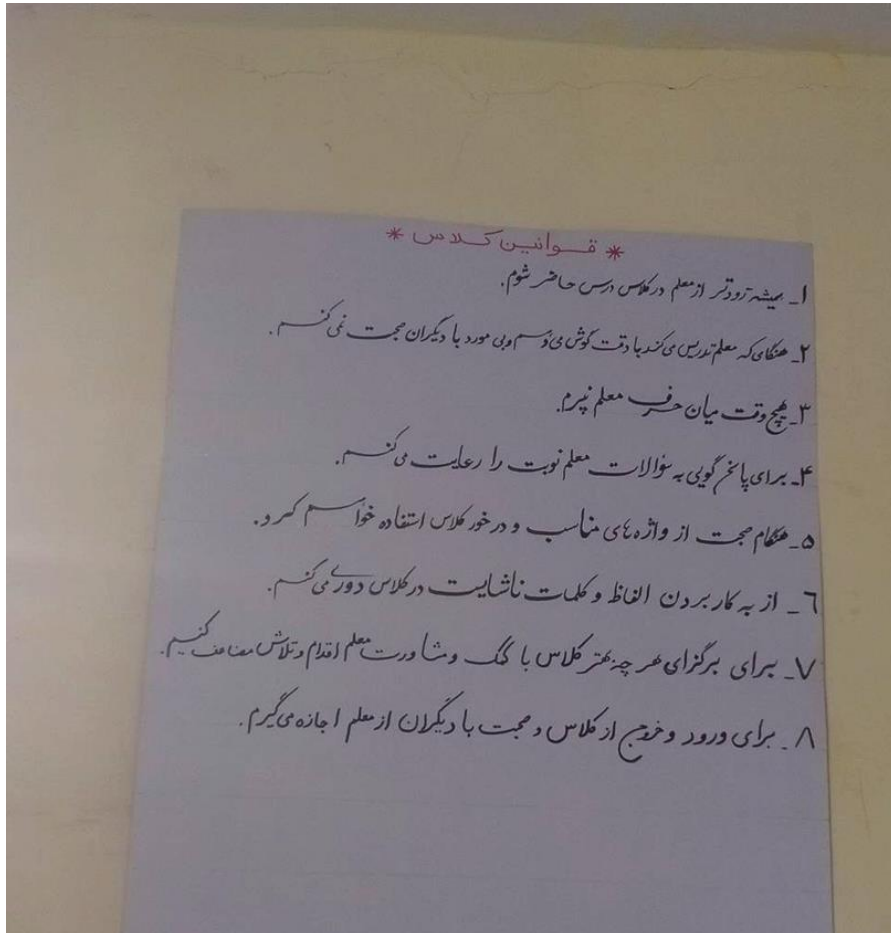 * قوانین کلاس *
۱_ همیشه زودتر از معلم در کلاس درس حاضر شوم.
۲_ هنگامی که معلم تدریس می‌کند با دقت گوش می‌دهم و بی مورد با دیگران صحبت نمی‌کنم.
۳_ هیچ وقت میان حرف معلم نپرم.
۴_ برای پاسخ گویی به سؤالات معلم نوبت را رعایت می‌کنم.
۵_ هنگام صحبت از واژه‌های مناسب و در خور کلاس استفاده خواهم کرد.
۶_ از به کار بردن الفاظ و کلمات ناشایست در کلاس دوری می‌کنم.
۷_ برای برگزاری هر چه بهتر کلاس با کمک و مشاورت معلم اقدام و تلاش مضاعف کنیم.
۸_ برای ورود و خروج از کلاس و صحبت با دیگران از معلم اجازه می‌گیرم.